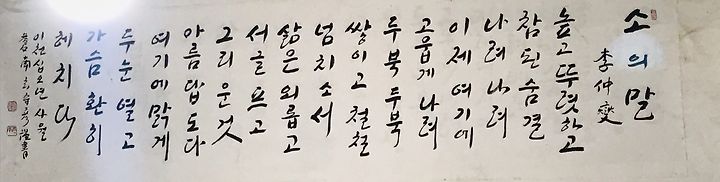 소의 말
李仲燮
높고 뚜렷하고
참된 숨결
나려 나려
이제 여기에
고웁게 나려
두북 두북
쌓이고 철철
넘치소서
삶은 외롭고
서글프고
그리운 것
아름답도다
여기에 맑게
두 눈 열고
가슴 환히
헤치다
이천십오년 사월